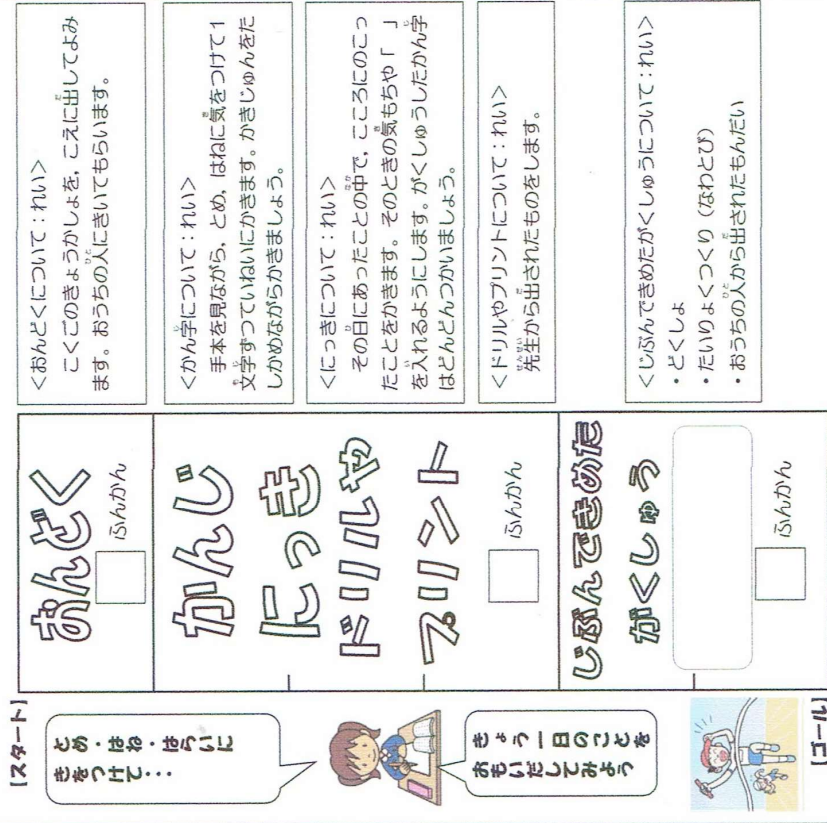 【スタート】
とめ・はね・はらいに
きをつけて・・・
きょう一日のことを
おもいだしてみよう
【ゴール】
おんどく
ふんかん
かんじ
にっき
ドリルや
プリント
ふんかん
じぶんできめた
がくしゅう
ふんかん
<おんどくについて：れい>
こくごのきょうかしょを，こえに出してよみ
ます。おうちの人にきいてもらいます。
<かん字について：れい>
手本を見ながら，とめ，はねに気をつけて１
文字ずつていねいにかきます。かきじゅんをた
しかめながらかきましょう。
<にっきについて：れい>
その日にあったことの中で，こころにのこっ
たことをかきます。そのときの気もちや「 」
を入れるようにします。がくしゅうしたかん字
はどんどんつかいましょう。
<ドリルやプリントについて：れい>
先生から出されたものをします。
<じぶんできめたがくしゅうについて：れい>
・どくしょ
・たいりょくつくり（なわとび）
・おうちの人から出されたもんだい